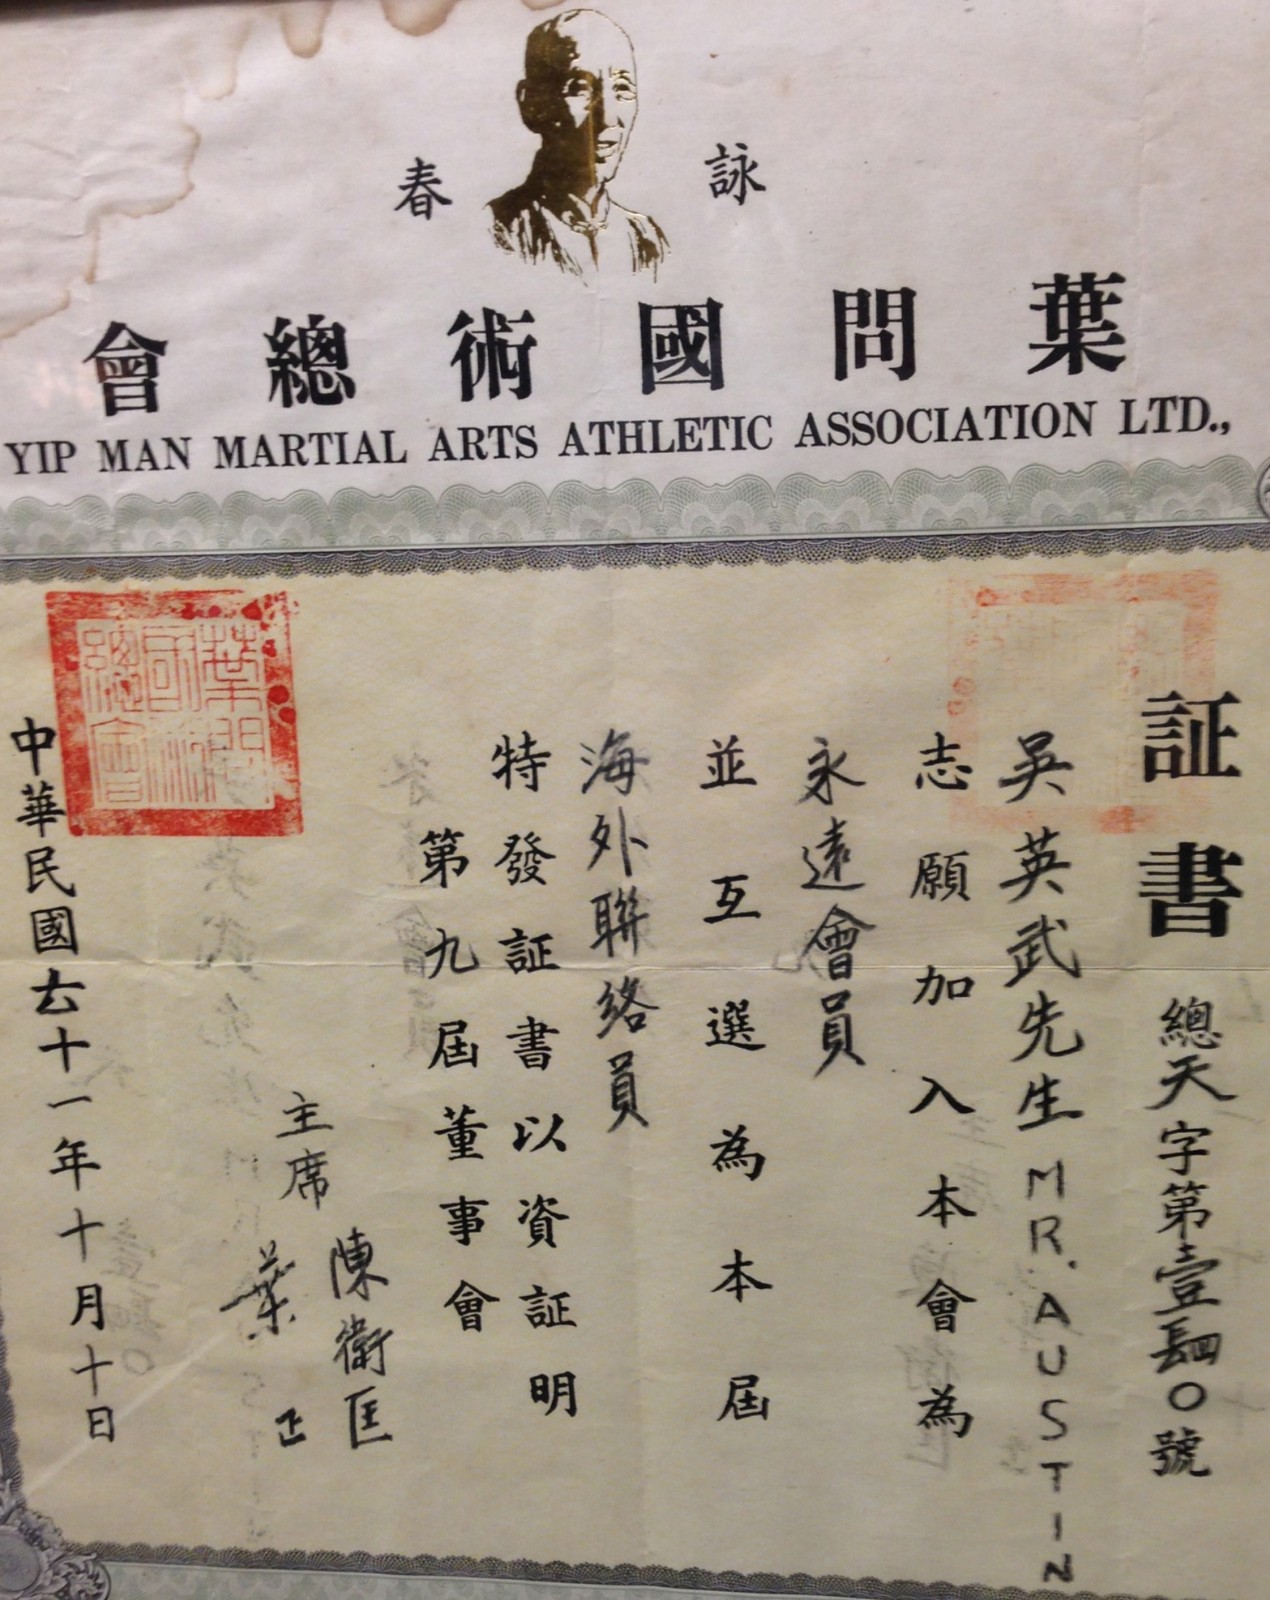 詠春
葉問國術總會
YIP MAN MARTIAL ARTS ATHLETIC ASSOCIATION LTD.,
証書 總天字第壹肆〇號
吳英武先生 MR. AUSTIN
志願加入本會為
永遠會員
並互選為本屆
海外聯絡員
特發証書以資証明
第九屆董事會
主席 陳衛匡
葉正
中華民國六十一年十月十日
葉問國術總會